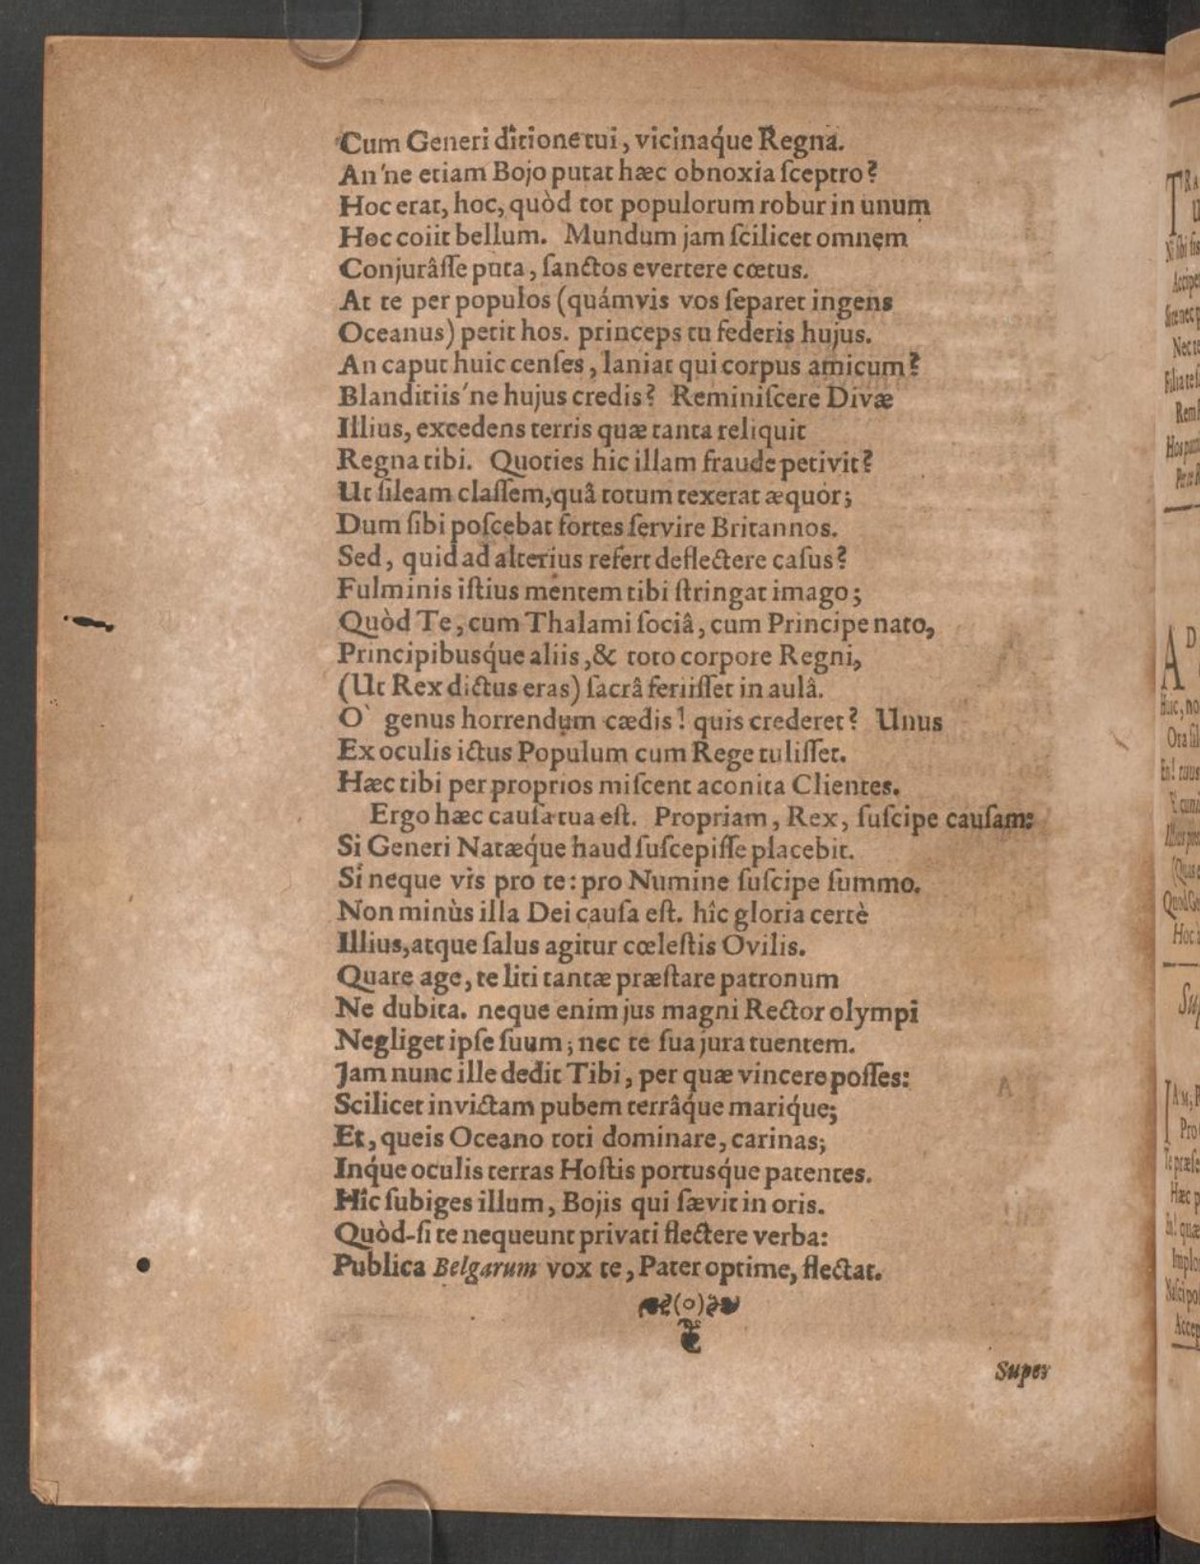 Cum Generi ditione tui, vicinaq́ue Regna.
An'ne etiam Bojo putat hæc obnoxia ſceptro?
Hoc erat, hoc, quòd tot populorum robur in unum
Hoc coiit bellum. Mundum jam ſcilicet omnem
Conjurâſſe puta, ſanctos evertere cœtus.
At te per populos (quámvis vos ſeparet ingens
Oceanus) petit hos. princeps tu federis hujus.
An caput huic cenſes, laniat qui corpus amicum?
Blanditiis'ne hujus credis? Reminiſcere Divæ
Illius, excedens terris quæ tanta reliquit
Regna tibi. Quoties hic illam fraude petivit?
Ut ſileam claſſem, quâ totum texerat æquor;
Dum ſibi poſcebat fortes ſervire Britannos.
Sed, quid ad alterius refert deflectere caſus?
Fulminis iſtius mentem tibi ſtringat imago;
Quòd Te, cum Thalami ſociâ, cum Principe nato,
Principibusq́ue aliis, & toto corpore Regni,
(Ut Rex dictus eras) ſacrâ feriiſſet in aulâ.
O` genus horrendum cædis! quis crederet? Unus
Ex oculis ictus Populum cum Rege tuliſſet.
Hæc tibi per proprios miſcent aconita Clientes.
Ergo hæc cauſa tua eſt. Propriam, Rex, ſuſcipe cauſam:
Si Generi Natæq́ue haud ſuſcepiſſe placebit.
Si neque vis pro te: pro Numine ſuſcipe ſummo.
Non minùs illa Dei cauſa eſt. hîc gloria certè
Illius, atque ſalus agitur cœleſtis Ovilis.
Quare age, te liti tantæ præſtare patronum
Ne dubita. neque enim jus magni Rector olympi
Negliget ipſe ſuum; nec te ſua jura tuentem.
Jam nunc ille dedit Tibi, per quæ vincere poſſes:
Scilicet invictam pubem terrâq́ue mariq́ue;
Et, queis Oceano toti dominare, carinas;
Inq́ue oculis terras Hoſtis portusq́ue patentes.
Hîc ſubiges illum, Bojis qui ſævit in oris.
Quòd-ſi te nequeunt privati flectere verba:
Publica Belgarum vox te, Pater optime, flectat.
Super